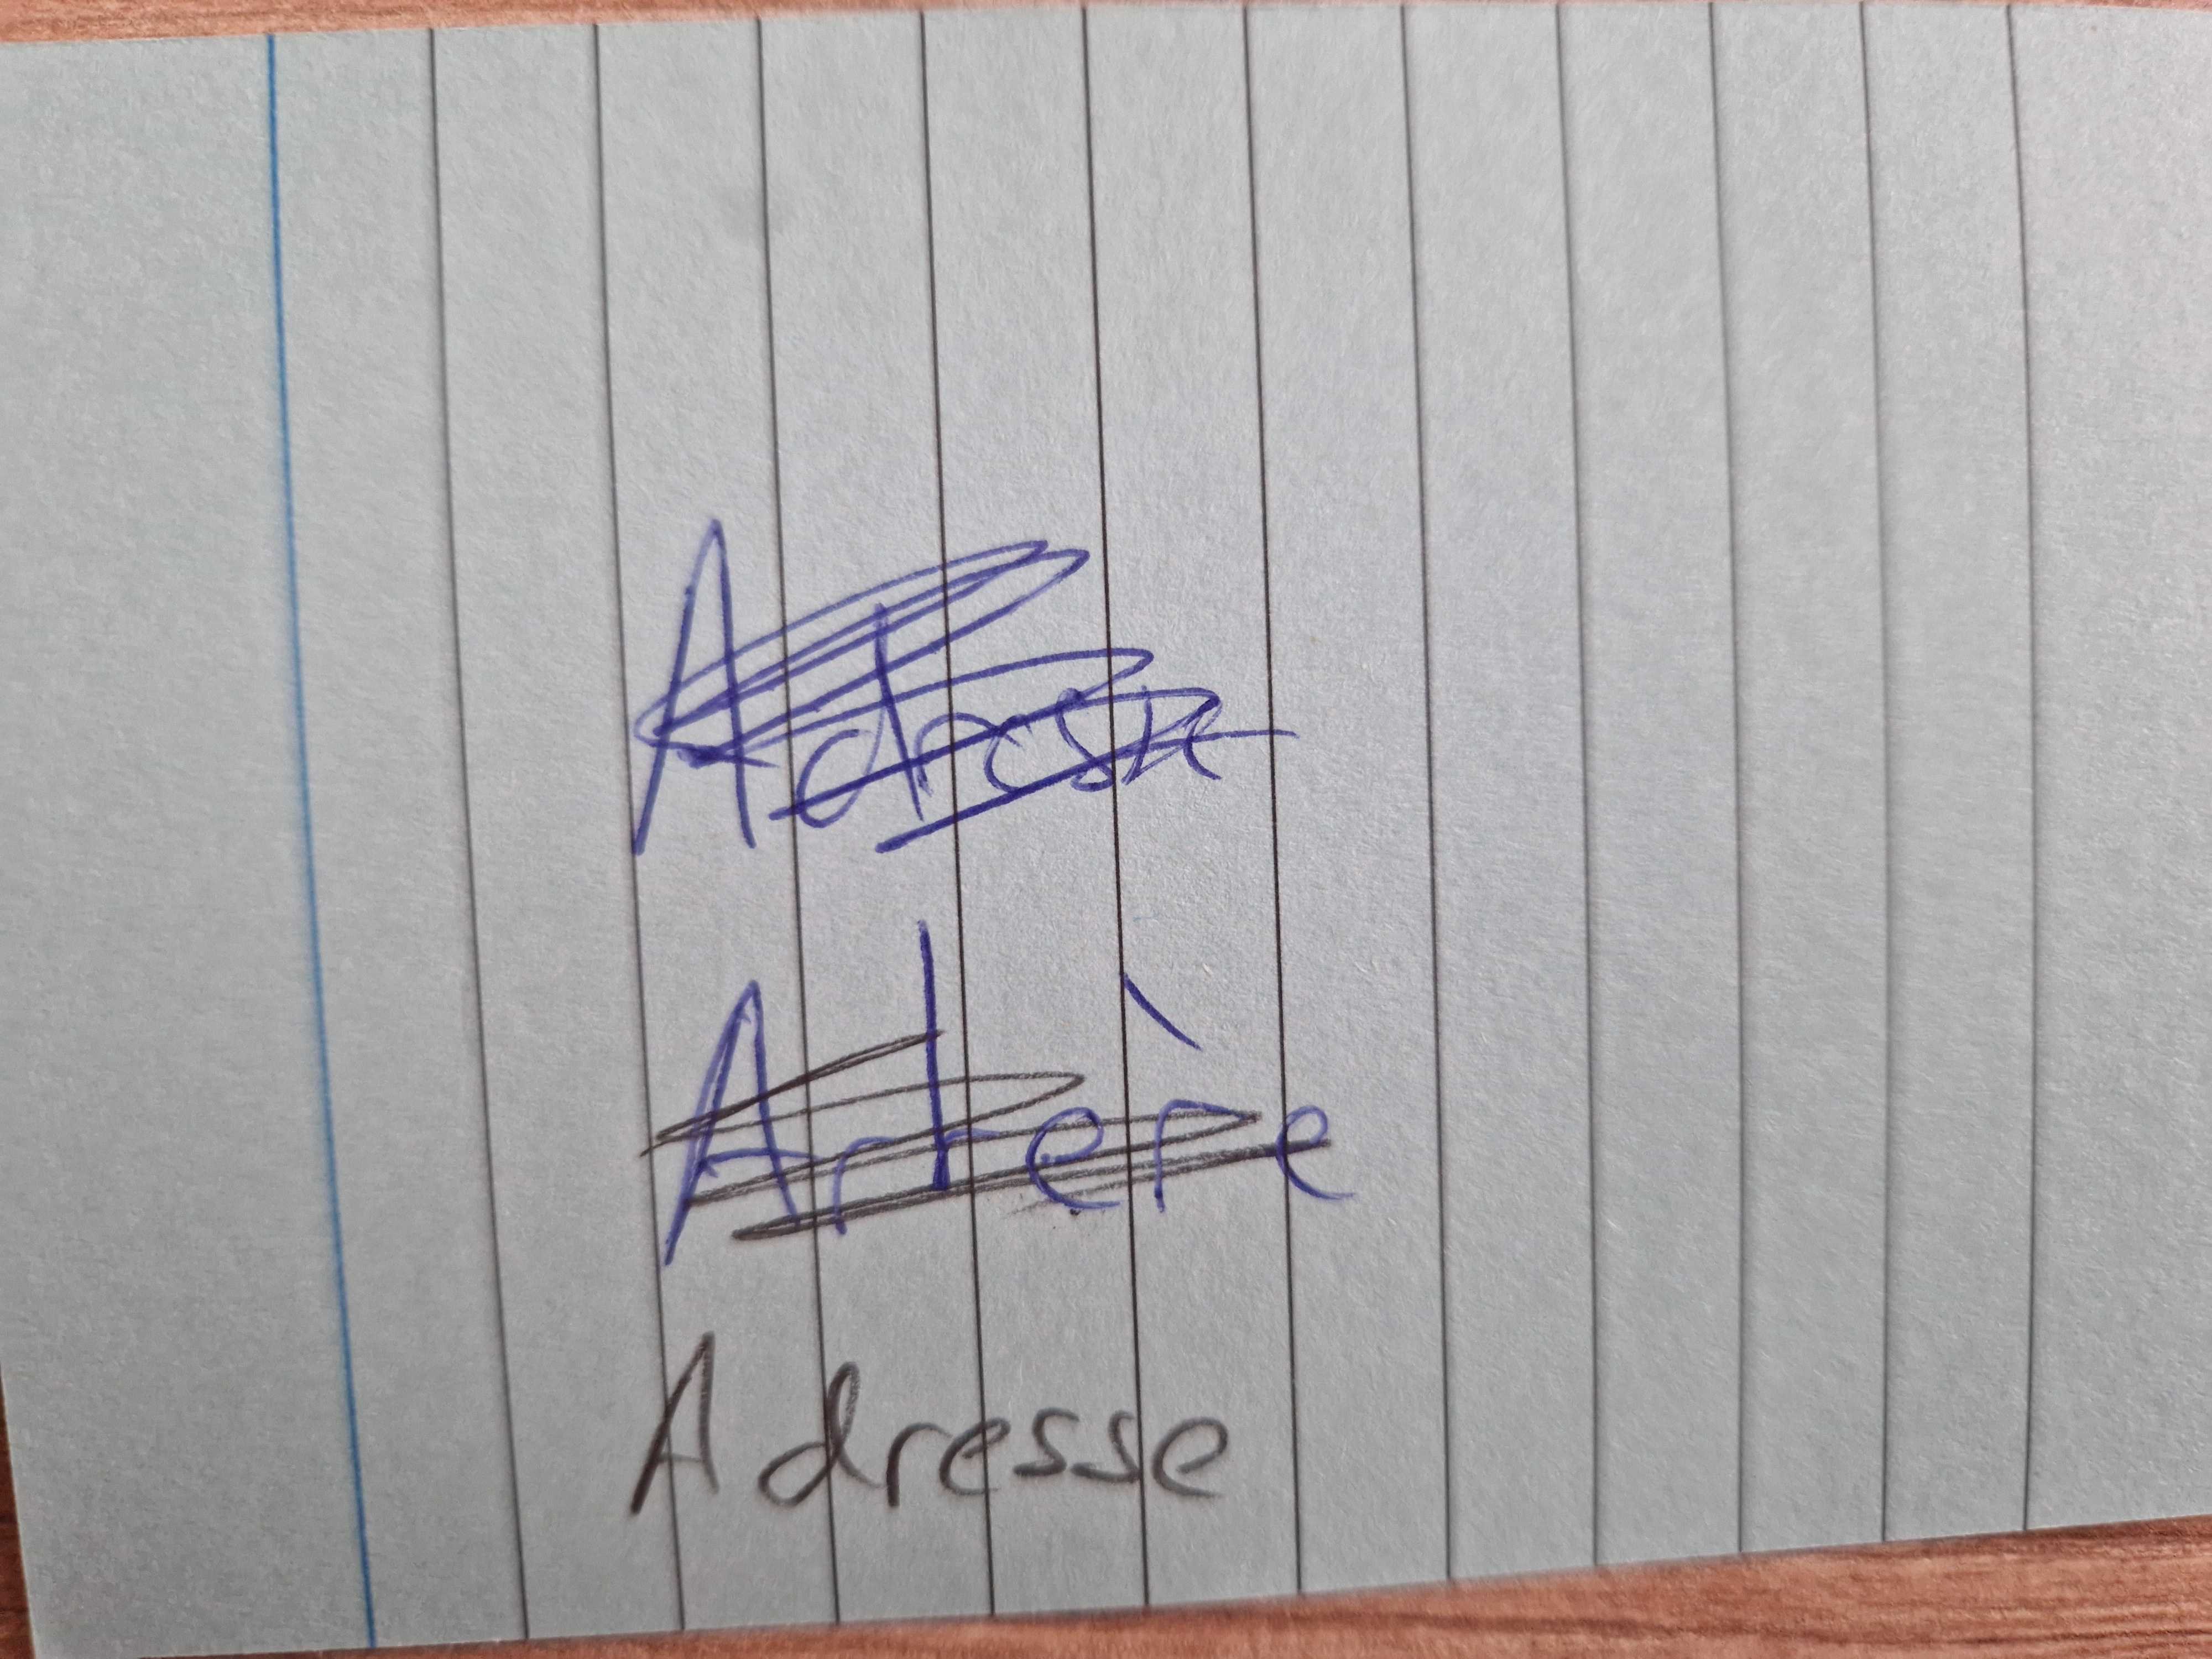 Adresse
Artère
Adresse